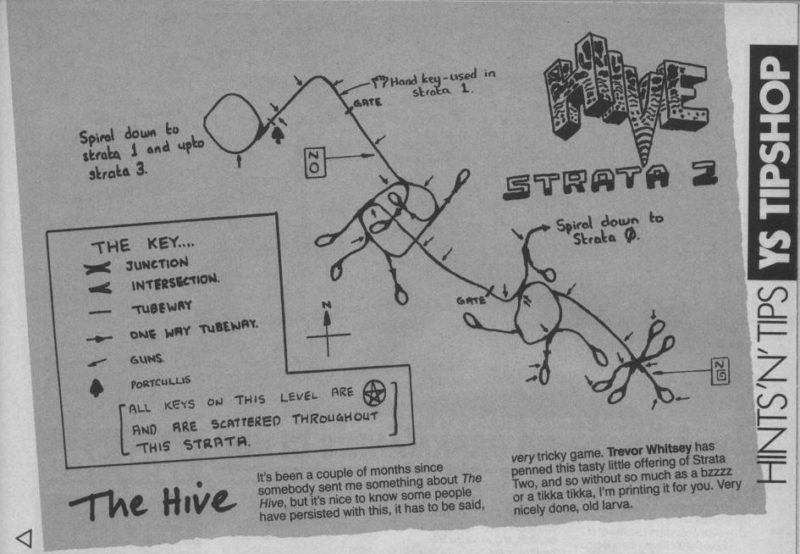 HIVE
STRATA 2
Hand key-used in
strata 1.
GATE
Spiral down to
strata 1 and upto
strata 3.
Spiral down to
Strata Ø.
GATE
N
THE KEY....
JUNCTION
INTERSECTION.
TUBEWAY
ONE WAY TUBEWAY.
GUNS
PORTCULLIS
ALL KEYS ON THIS LEVEL ARE
AND ARE SCATTERED THROUGHOUT
THIS STRATA.
The Hive
It's been a couple of months since
somebody sent me something about The
Hive, but it's nice to know some people
have persisted with this, it has to be said,
very tricky game. Trevor Whitsey has
penned this tasty little offering of Strata
Two, and so without so much as a bzzzz
or a tikka tikka, I'm printing it for you. Very
nicely done, old larva.
HINTS'N'TIPS YS TIPSHOP